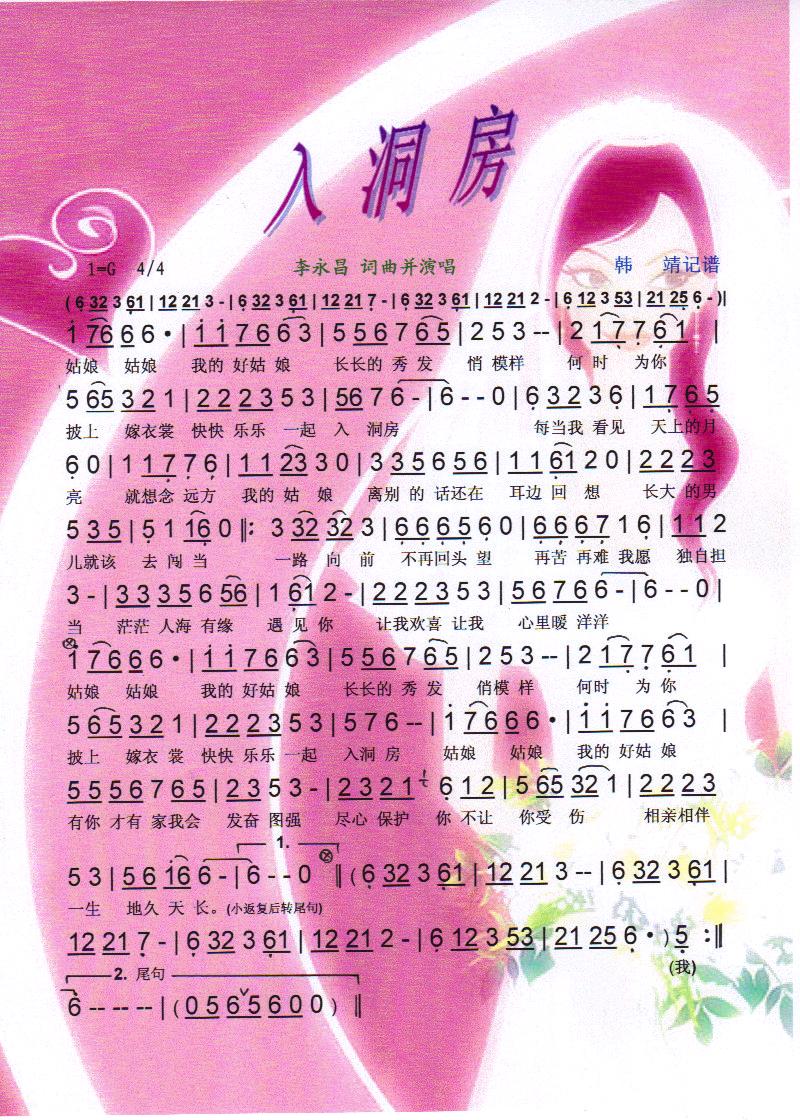 入洞房
1=G 4/4 李永昌 词曲并演唱 韩 靖记谱
( 6 32 3 61 | 12 21 3 - | 6 32 3 61 | 12 21 7 - | 6 32 3 61 | 12 21 2 - | 6 12 3 53 | 21 25 6 - )|
1 76 6 6 · | 1 1 7 6 6 3 | 5 5 6 7 6 5 | 2 5 3 -- | 2 1 7 7 6 1 |
姑娘 姑娘 我的 好姑 娘 长长的 秀 发 悄 模样 何 时 为你
5 65 3 2 1 | 2 2 2 3 5 3 | 56 7 6 - | 6 - - 0 | 6 3 2 3 6 | 1 7 6 5
披上 嫁衣裳 快快 乐乐 一起 入 洞房 每当我 看见 天上的月
6 0 | 1 1 7 7 6 | 1 1 23 3 0 | 3 3 5 6 5 6 | 1 1 61 2 0 | 2 2 2 3
亮 就想念 远方 我的 姑 娘 离别 的 话还在 耳边 回 想 长大 的男
5 3 5 | 5 1 16 0 ‖: 3 32 32 3 | 6 6 6 5 6 0 | 6 6 6 7 1 6 | 1 1 2
儿就该 去 闯 当 一路 向 前 不再回头 望 再苦 再难 我愿 独自担
3 - | 3 3 3 5 6 56 | 1 61 2 - | 2 2 2 3 5 3 | 5 6 7 6 6 - | 6 - - 0 |
当 茫茫 人海 有缘 遇 见 你 让我欢喜 让我 心里暖 洋洋
⊗
1 7 6 6 6 · | 1 1 7 6 6 3 | 5 5 6 7 6 5 | 2 5 3 -- | 2 1 7 7 6 1 |
姑娘 姑娘 我的 好姑 娘 长长的 秀 发 悄模 样 何时 为 你
5 6 5 3 2 1 | 2 2 2 3 5 3 | 5 7 6 -- | 1 7 6 6 6 · | 1 1 7 6 6 3 |
披上 嫁衣 裳 快快 乐乐 一起 入洞 房 姑娘 姑娘 我的 好姑 娘
5 5 5 6 7 6 5 | 2 3 5 3 - | 2 3 2 1 6 1 2 | 5 65 3 2 1 | 2 2 2 3
有你 才有 家我会 发奋 图强 尽心 保护 你 不让 你受 伤 相亲相伴
1. ⊗
5 3 | 5 6 16 6 - | 6 - - 0 ‖ ( 6 32 3 61 | 12 21 3 -- | 6 32 3 61 |
一生 地久 天 长。(小返复后转尾句)
12 21 7 - | 6 32 3 61 | 12 21 2 - | 6 12 3 53 | 21 25 6 · ) 5 :‖
(我)
2. 尾句
6 -- -- -- | ( 0 5 6 5 6 0 0 ) ‖